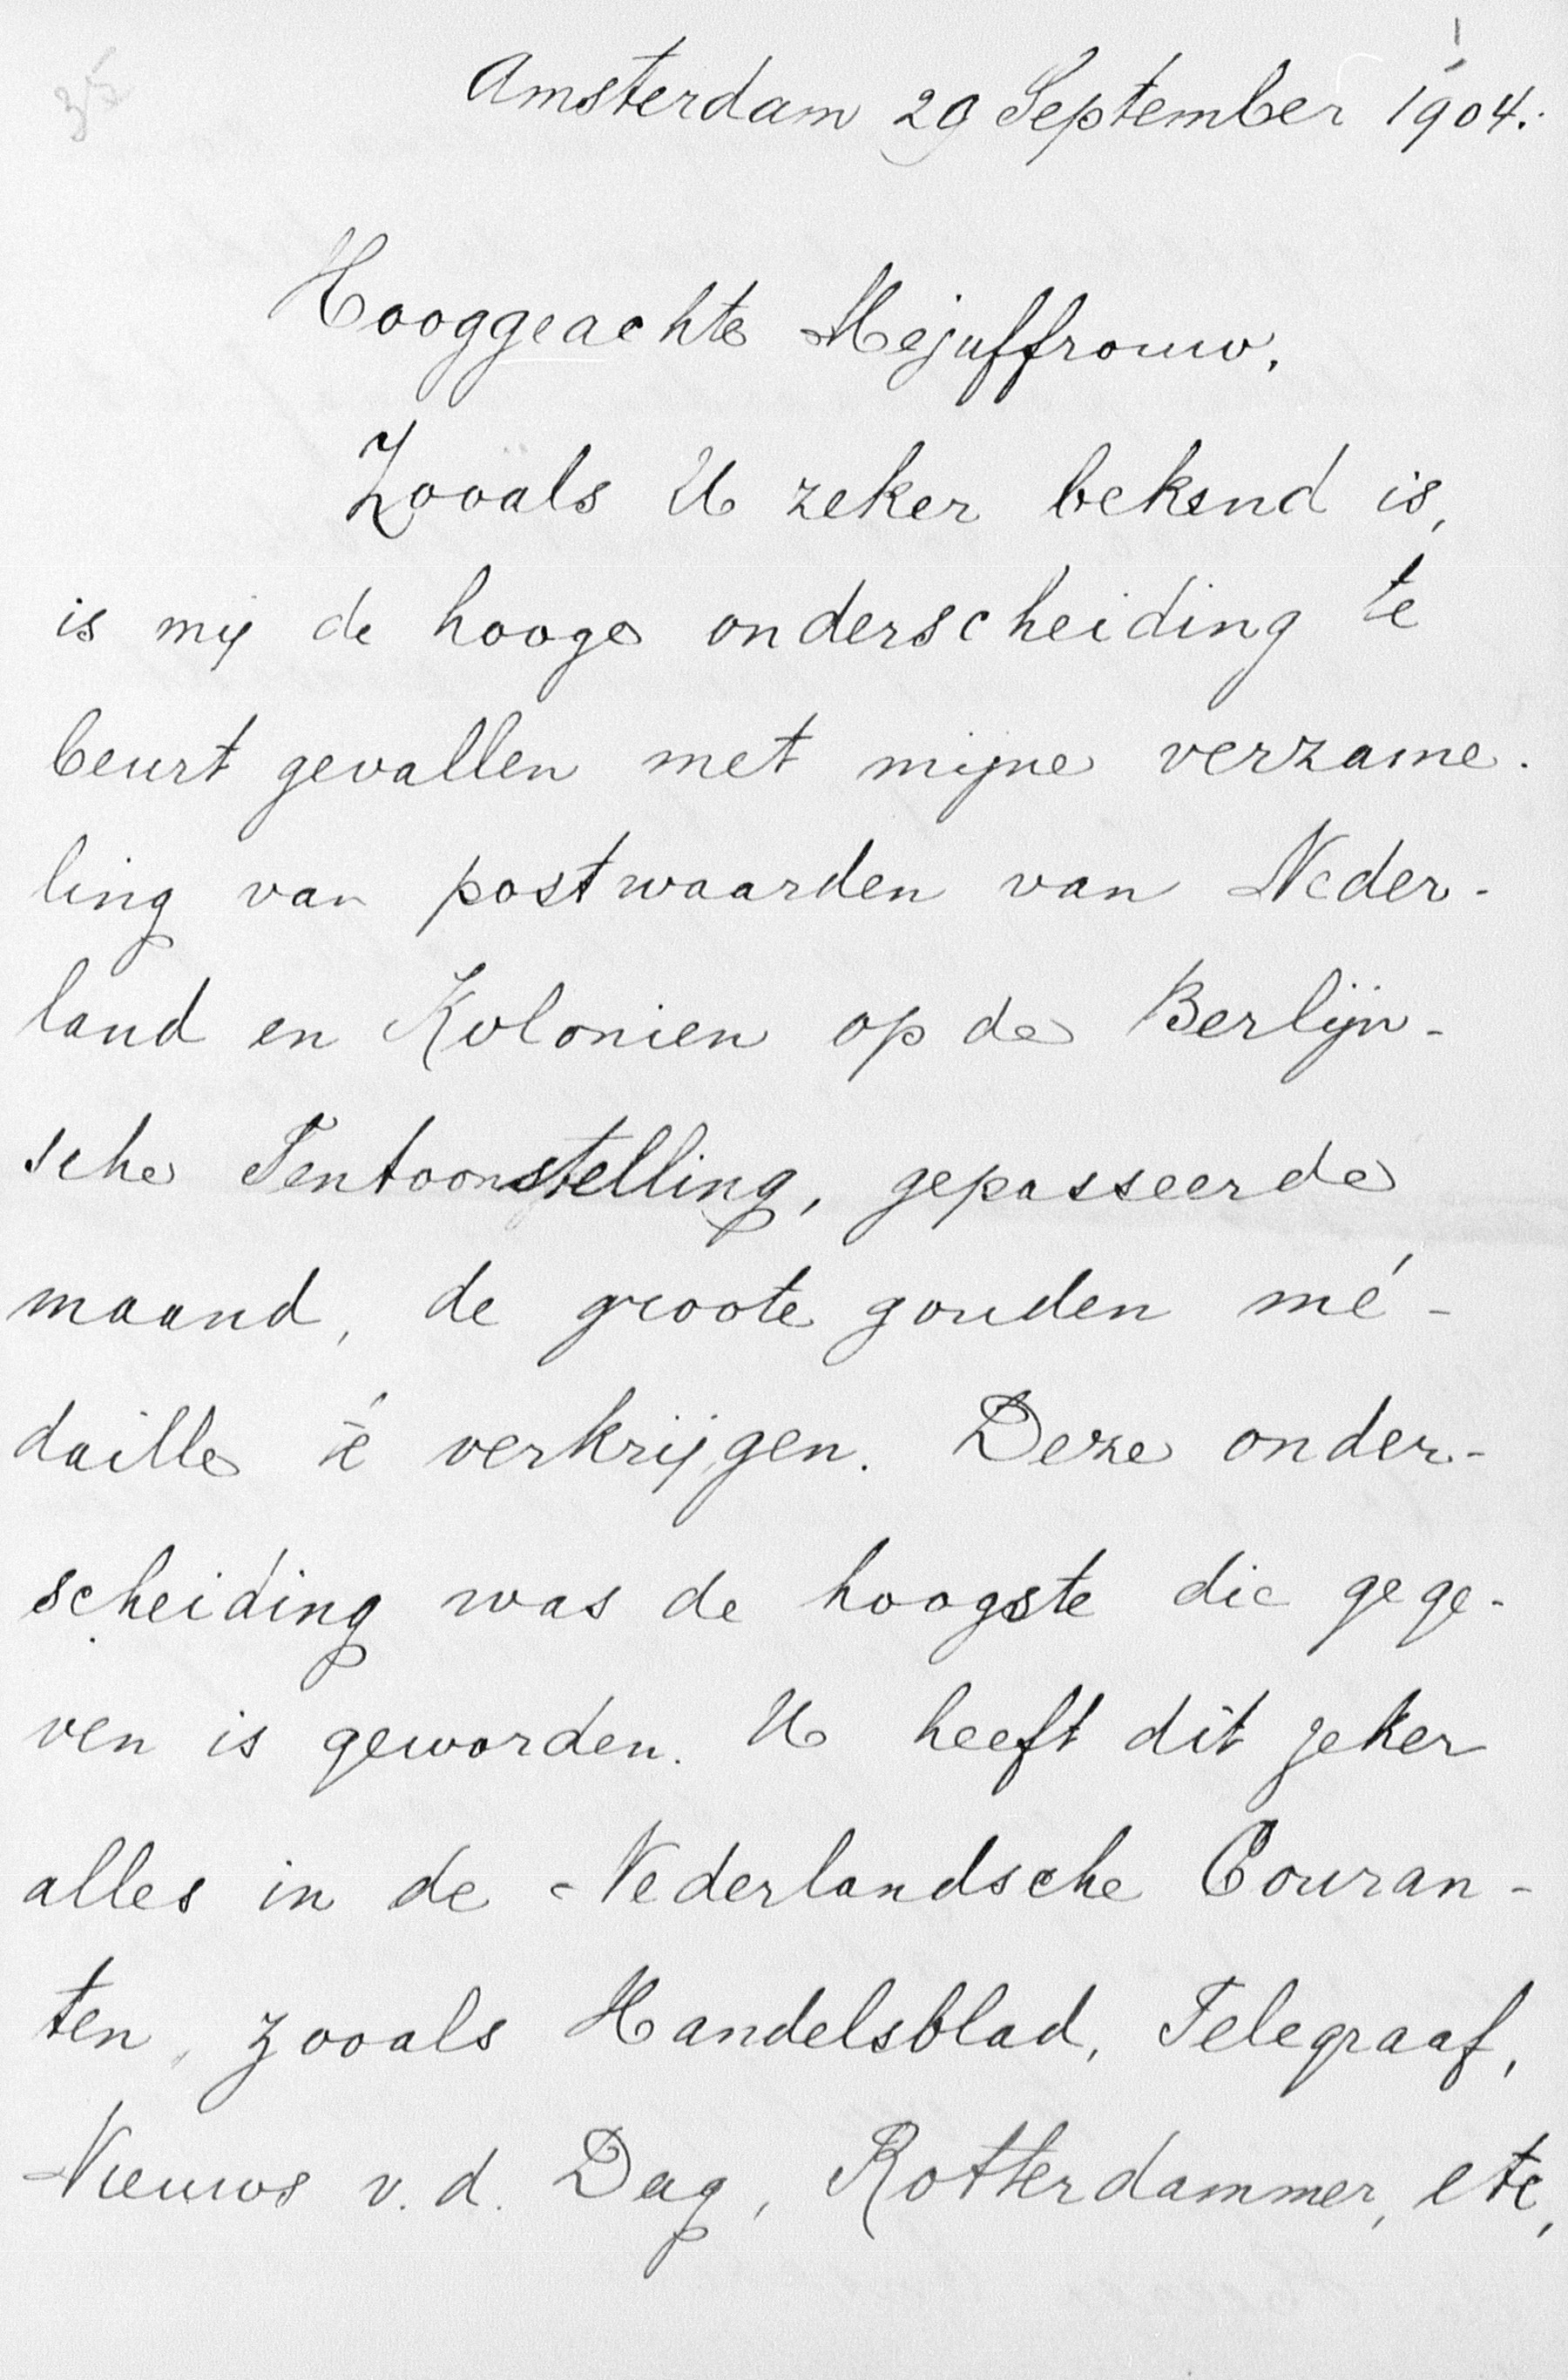 Amsterdam 29 September 1904.
Hooggeachte Mejuffrouw,
Zooals U zeker bekend is,
is mij de hooge onderscheiding te
beurt gevallen met mijne verzame-
ling van postwaarden van Neder-
land en Kolonien op de Berlijn-
sche Tentoonstelling, gepasseerde
maand, de groote gouden mé-
daille te verkrijgen. Deze onder-
scheiding was de hoogste die gege-
ven is geworden. U heeft dit zeker
alles in de Nederlandsche Couran-
ten, zooals Handelsblad, Telegraaf,
Nieuws v. d. Dag, Rotterdammer, etc,